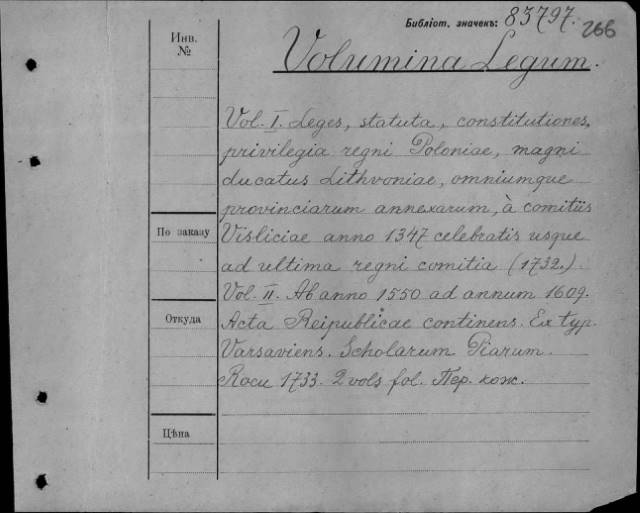 Библіот. значекъ: 83797. 266
Инв.
№
Volumina Legum.
Vol. I. Leges, statuta, constitutiones,
privilegia regni Poloniae, magni
ducatus Lithvoniae, omniumque
provinciarum annexarum, à comitiis
По заказу
Visliciae anno 1347 celebratis usque
ad ultima regni comitia (1732.)
Vol. II. Ab anno 1550 ad annum 1609.
Откуда
Acta Reipublicae continens. Ex typ.
Varsaviens. Scholarum Piarum.
Rocu 1733. 2 vols fol. Пер. кож.
Цѣна